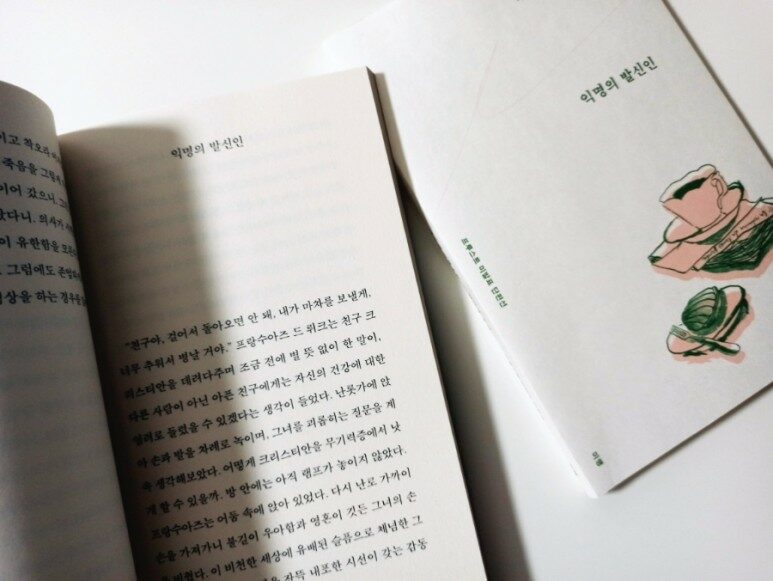 이고 착오라
죽음을 그렇게
이어 갔으니. 그
았다니. 의사가
이 유한함을 모든
. 그럼에도 존엄하
상을 하는 경우를
익명의 발신인
"친구야, 걸어서 돌아오면 안 돼, 내가 마차를 보낼게,
너무 추워서 병날 거야." 프랑수아즈 드 뤼크는 친구 크
리스티안을 데려다주며 조금 전에 별 뜻 없이 한 말이,
다른 사람이 아닌 아픈 친구에게는 자신의 건강에 대한
염려로 들렸을 수 있겠다는 생각이 들었다. 난롯가에 앉
아 손과 발을 차례로 녹이며, 그녀를 괴롭히는 질문을 계
속 생각해보았다. 어떻게 크리스티안을 무기력증에서 낫
게 할 수 있을까. 방 안에는 아직 램프가 놓이지 않았다.
프랑수아즈는 어둠 속에 앉아 있었다. 다시 난로 가까이
손을 가져가니 불길이 우아함과 영혼이 깃든 그녀의 손
을 비췄다. 이 비천한 세상에 유배된 슬픔으로 체념한 그
을 가득 내포한 시선이 갖는 감동
익명의 발신인
프루스트 미발표 단편선
미행